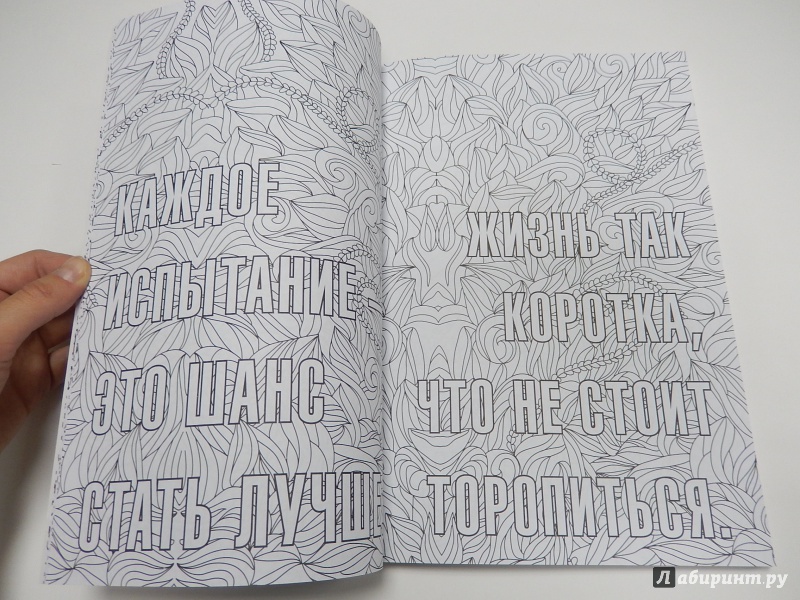 КАЖДОЕ
ИСПЫТАНИЕ –
ЭТО ШАНС
СТАТЬ ЛУЧШЕ
ЖИЗНЬ ТАК
КОРОТКА,
ЧТО НЕ СТОИТ
ТОРОПИТЬСЯ.
Лабиринт.ру